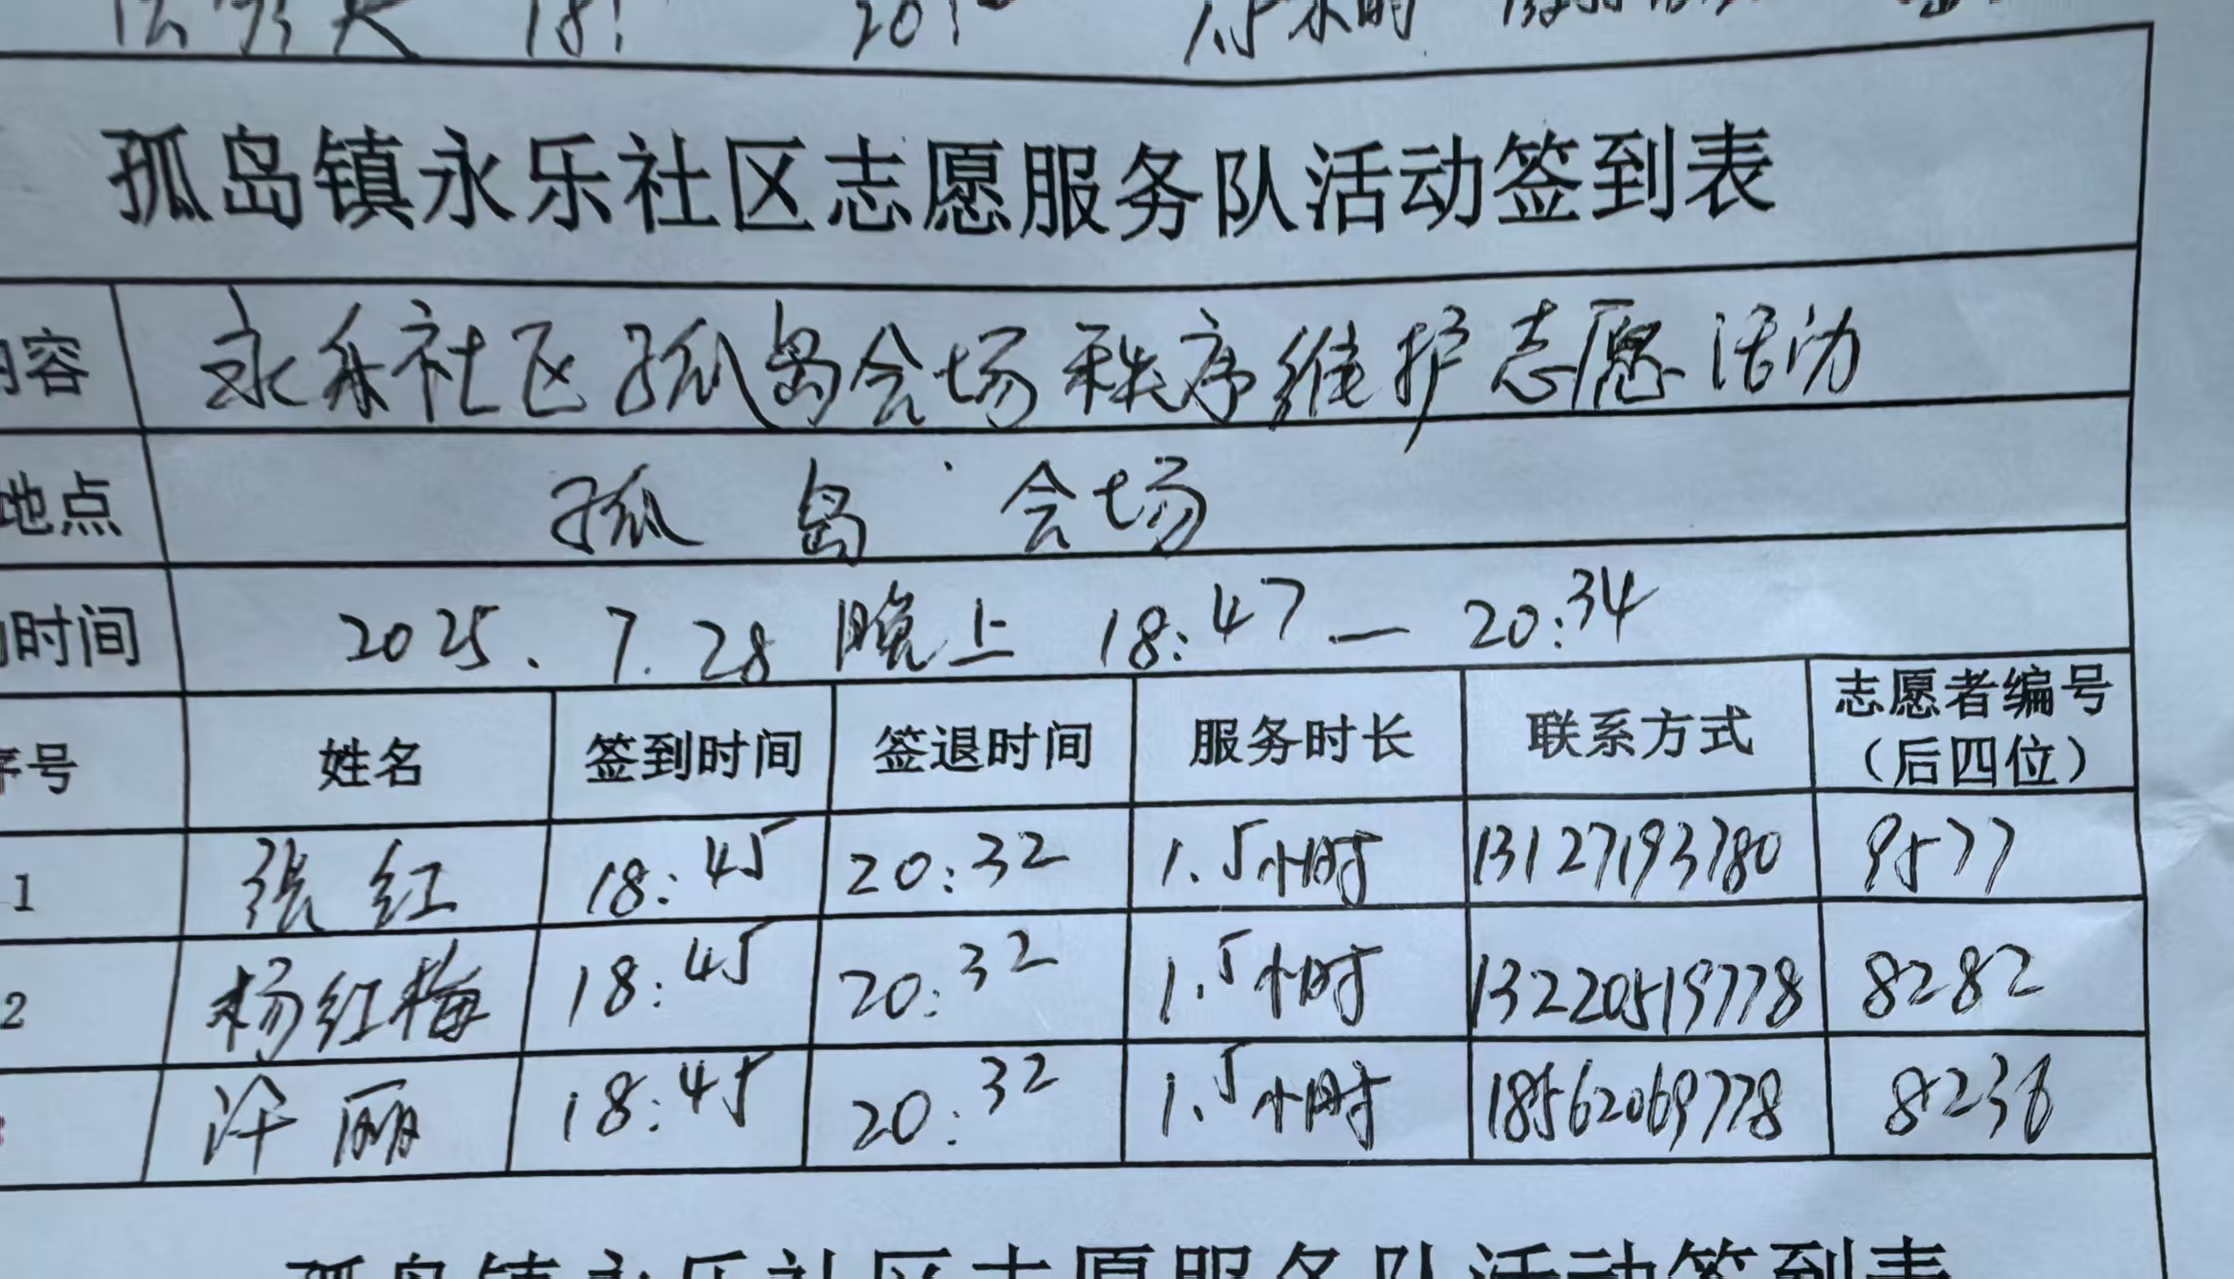 孤岛镇永乐社区志愿服务队活动签到表
容 永乐社区孤岛会场秩序维护志愿活动
地点 孤岛会场
时间 2025.7.28 晚上 18:47—20:34
号 姓名 签到时间 签退时间 服务时长 联系方式 志愿者编号（后四位）
1 張红 18:45 20:32 1.5小时 13127193780 9577
2 杨红梅 18:45 20:32 1.5小时 13220519778 8282
丽 18:45 20:32 1.5小时 18562069778 8236
孤岛镇永乐社区志愿服务队活动签到表